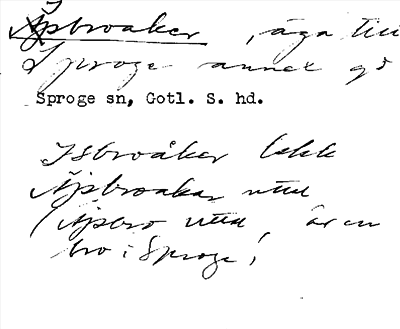 Äpsbroaker, äga till
Sproge annex gd
Sproge sn, Gotl. S. hd.
Isbroåker lekk
Äpsbroakar uttal
(Äpsbro uttal, är en
bro i Sproge)